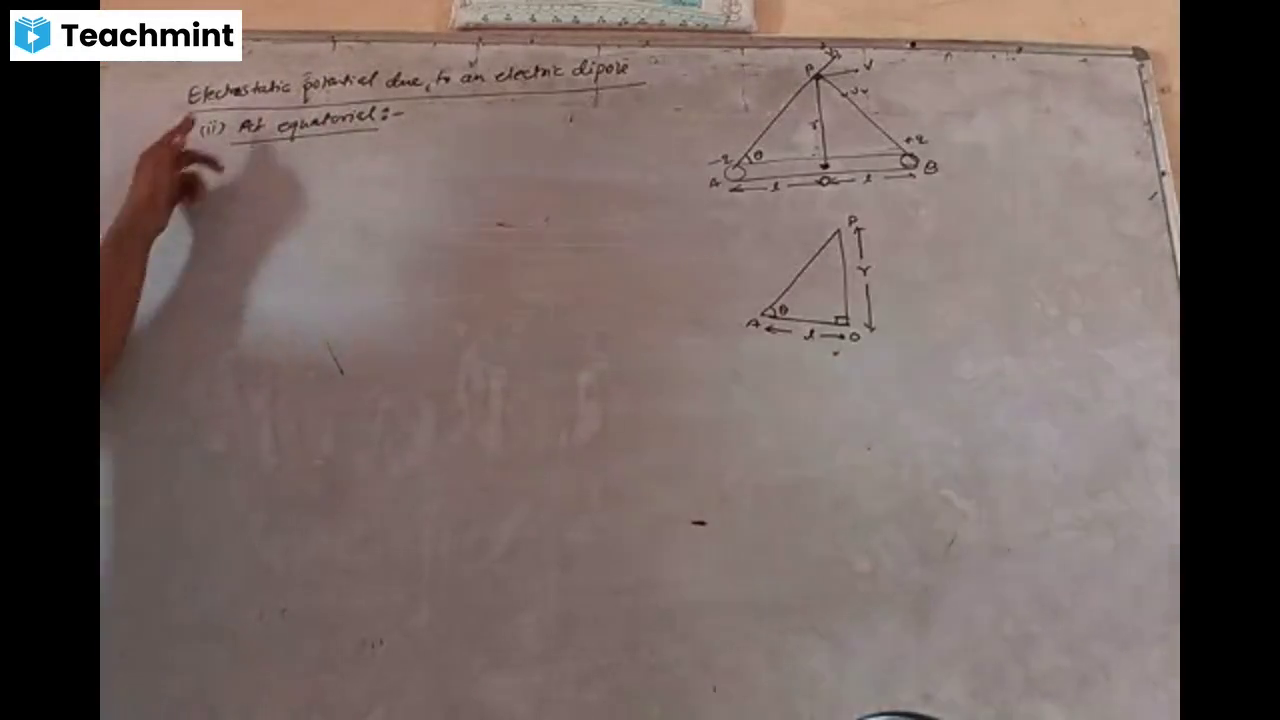 Teachmint
Electrostatic potential due to an electric dipole
(ii) At equatorial :-
P
V
r
-q
θ
+q
A
l
O
l
B
P
r
θ
A
l
O